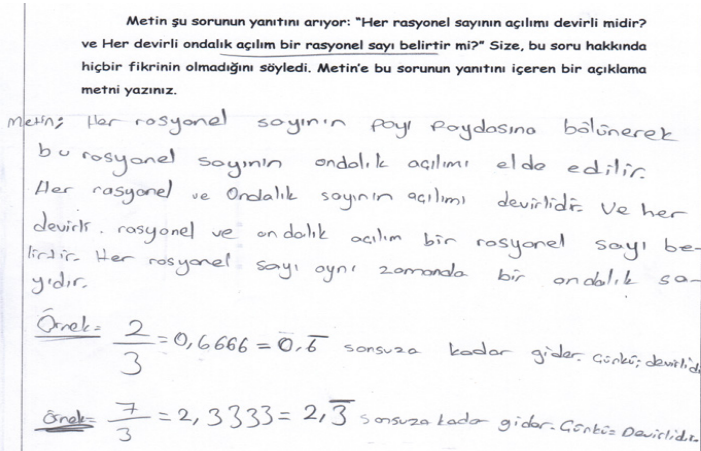 Metin şu sorunun yanıtını arıyor: "Her rasyonel sayının açılımı devirli midir?
ve Her devirli ondalık açılım bir rasyonel sayı belirtir mi?" Size, bu soru hakkında
hiçbir fikrinin olmadığını söyledi. Metin'e bu sorunun yanıtını içeren bir açıklama
metni yazınız.
Metin; Her rasyonel sayının payı paydasına bölünerek
bu rasyonel sayının ondalık açılımı elde edilir.
Her rasyonel ve Ondalık sayının açılımı devirlidir. Ve her
devirli. rasyonel ve ondalık açılım bir rasyonel sayı be-
lirtir. Her rasyonel sayı aynı zamanda bir ondalık sa-
yıdır.
Örnek= 2/3 = 0,6666 = 0,6̅ sonsuza kadar gider. Çünkü; devirlidi
Örnek= 7/3 = 2,3333 = 2,3̅ sonsuza kadar gider. Çünkü= Devirlidir.